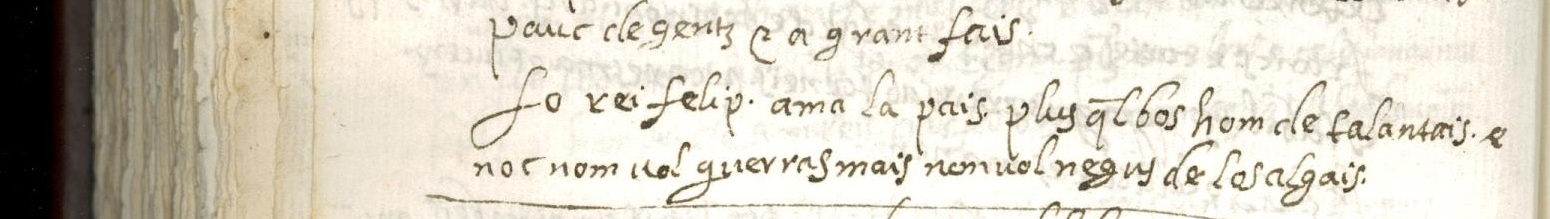 pauc de gentz & a grant fais.
Lo rei felip. ama la pais. plus q̄l bos hom de talantais. e
noc nom uol guerras mais nonuol negus de los algais.